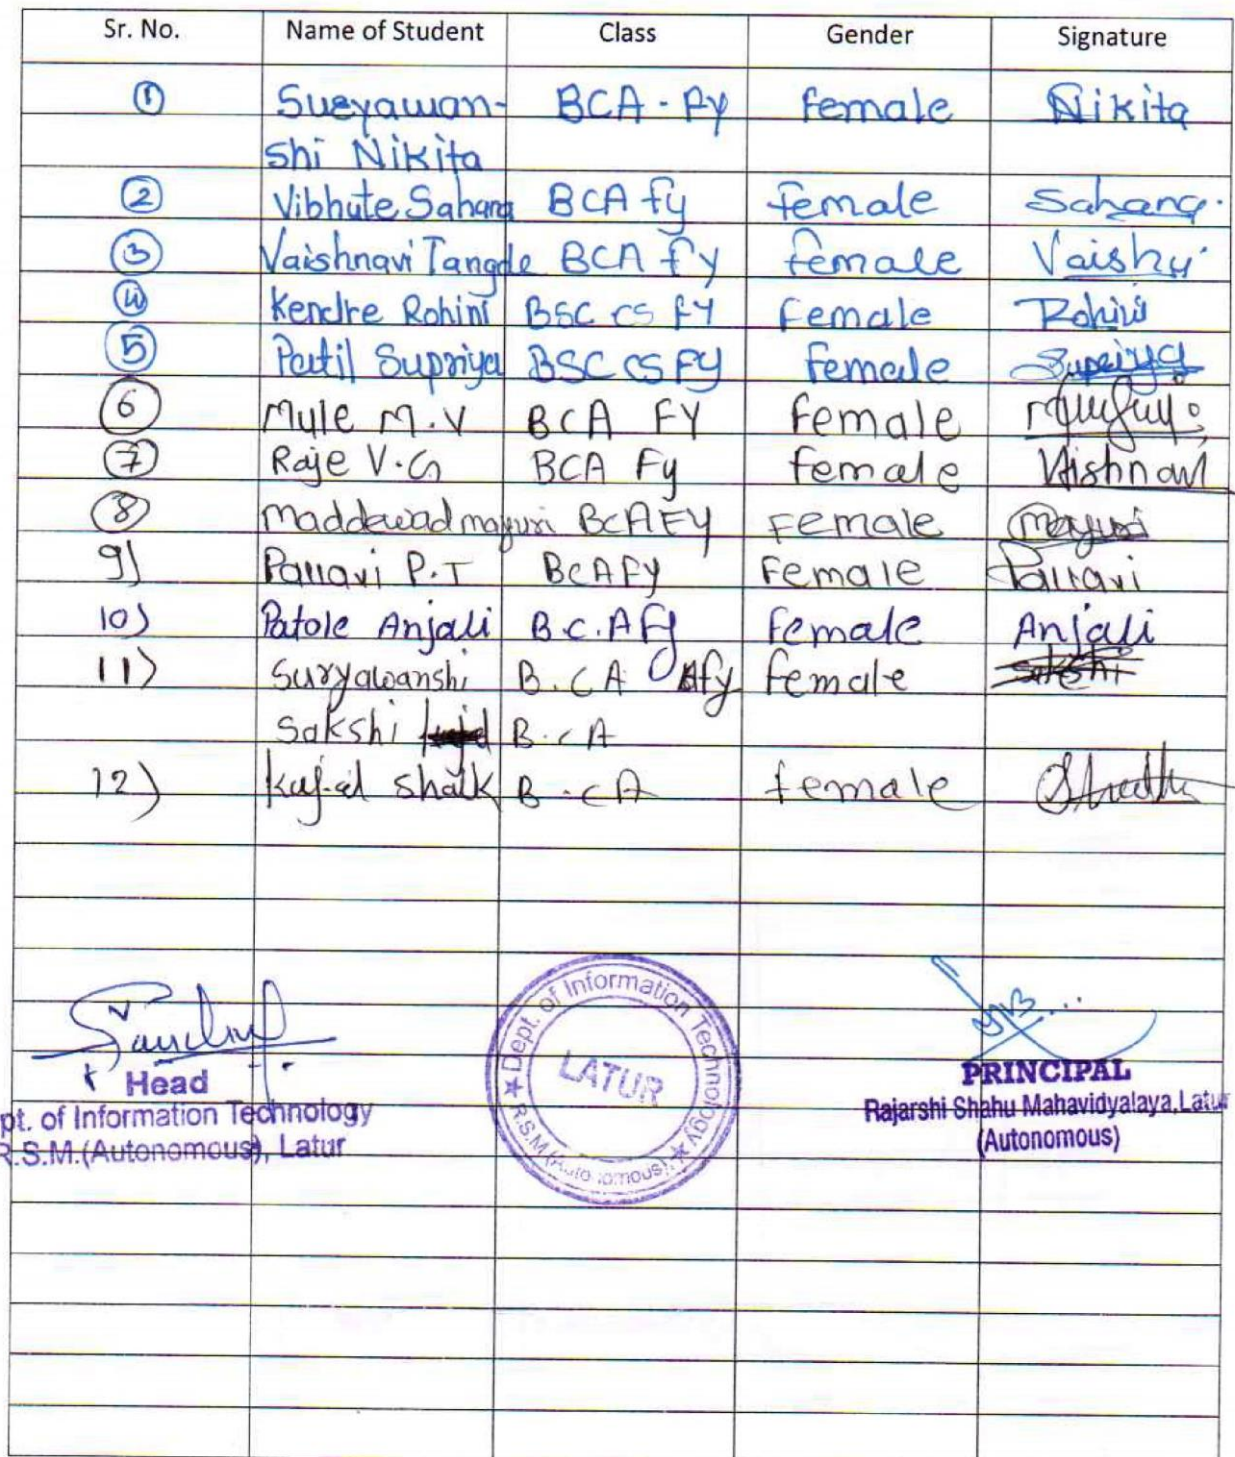 Sr. No. Name of Student Class Gender Signature
1 Sueyawan- BCA - Fy Female Nikita
shi Nikita
2 Vibhute Sahana BCA fy female Sahana.
3 Vaishnavi Tangde BCA fy female Vaishu
4 Kendre Rohini BSC CS FY Female Rohini
5 Patil Supriya BSC CS FY Female Supriya
6 Myle M.V BCA FY Female
7 Raje V.G BCA Fy female Vishnavi
8 Maddewad mayuri BCA FY Female Mayuri
9) Pallavi P.T BCA Fy Female Pallavi
10) Patole Anjali B.C.A Fy Female Anjali
11) Suryawanshi B.C A fy female Sakshi
Sakshi B.C A
12) Kajal Shaik B.C A female
★ Dept. of Information Technology ★ R.S.M (Autonomous)
LATUR
Head
pt. of Information Technology
R.S.M.(Autonomous), Latur
PRINCIPAL
Rajarshi Shahu Mahavidyalaya, Latur
(Autonomous)